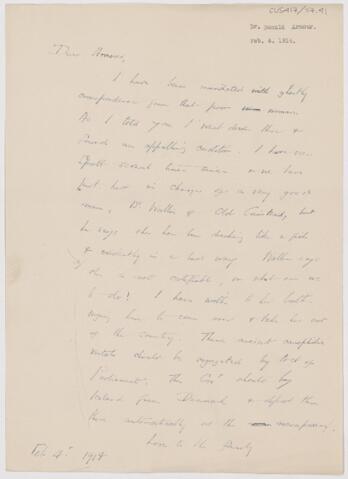 CUS417/57.91
Dr. Donald Armour.
Feb. 4. 1914.
Dear
I have been inundated with ghastly
correspondence from that poor woman.
As I told you I went down there &
found an appalling condition. I have
several times since & we have
put her in charge of a very good
man, Dr. of Old but
he says she has been drinking like a fish
& evidently in a bad way. says
she is not certifiable, so what are we
to do! I have written to her
urging him to come over & take her out
of the country. These ancient
should be segregated by Act of
Parliament. The Govt should buy
Iceland from Denmark & deport them
there automatically at the
Love to the family
Feb 4th 1914